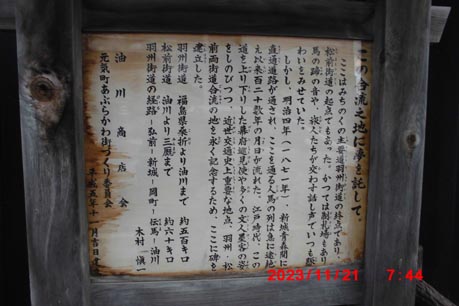 この合流之地に夢を託して、
ここはみちのくの主要道羽州街道の終点であり、
松前街道の起点でもあった。かつては制札場もあり、
馬の蹄の音や、旅人たちが交わす話し声でいつも賑
わいをみせていた。
しかし、明治四年（一八七一年）、新城青森間に
直通道路が通され、ここを通る人馬の列は急に途絶
え以来百二十数年の月日が流れた。江戸時代、この
道を上り下りした幕府巡見使や多くの文人墨客の姿
をしのびつつ、近世交通史上重要な地点、羽州・松
前両街道合流の地を永く記念するため、ここに碑を
建立した。
羽州街道 福島県桑折より油川まで 約五百キロ
松前街道 油川より三厩まで 約六十キロ
羽州街道の経路－弘前－新城－岡町－伝馬－油川
木村 慎一
油川商店会
元気町あぶらかわ街づくり委員会
平成五年十一月吉日
2023/11/21 7:44